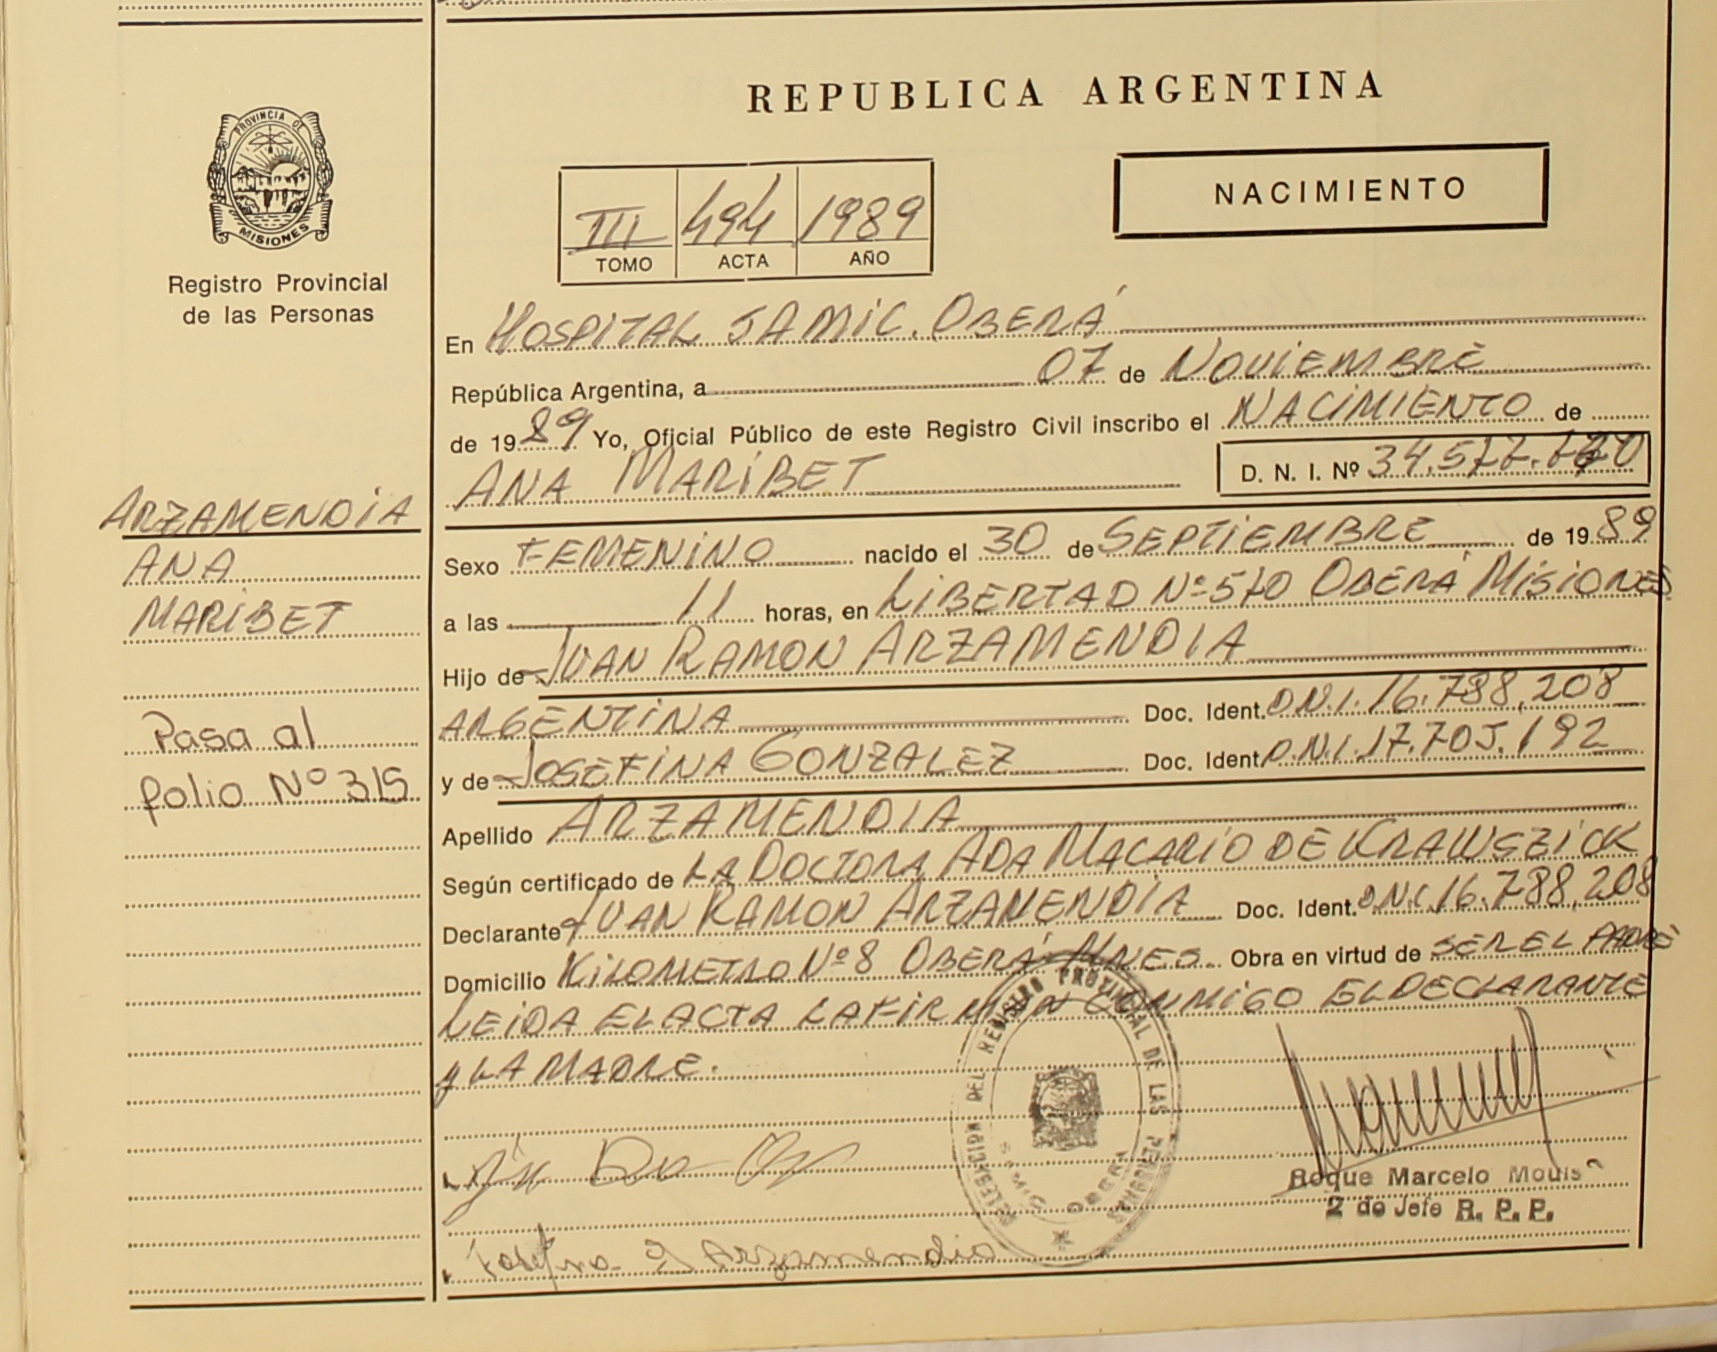 REPUBLICA ARGENTINA
PROVINCIA DE
MISIONES
Registro Provincial
de las Personas
NACIMIENTO
III 494 1989
TOMO ACTA AÑO
En HOSPITAL SAMIC. OBERÁ
República Argentina, a 07 de NOVIEMBRE
de 1989 Yo, Oficial Público de este Registro Civil inscribo el NACIMIENTO de
ANA MARIBET D. N. I. Nº 34.577.
ARZAMENDIA
ANA
MARIBET
Pasa al
folio Nº 315
Sexo FEMENINO nacido el 30 de SEPTIEMBRE de 1989
a las 11 horas, en LIBERTAD Nº 510 OBERÁ MISIONES
Hijo de JUAN RAMON ARZAMENDIA
ARGENTINA Doc. Ident. D.N.I. 16.788.208
y de JOSEFINA GONZALEZ Doc. Ident. D.N.I. 17.705.192
Apellido ARZAMENDIA
Según certificado de LA DOCTORA ADA MACARIO DE KRAWSZICK
Declarante JUAN RAMON ARZAMENDIA Doc. Ident. D.N.I. 16.788.208
Domicilio KILOMETRO Nº 8 OBERÁ MNES Obra en virtud de SER EL PADRE
LEIDA EL ACTA LA FIRMAN CONMIGO EL DECLARANTE
y LA MADRE.
DELEGACION DEL REGISTRO PROVINCIAL DE LAS PERSONAS
SAMIC OBERA
Roque Marcelo
2 do Jefe R. P. P.
Josefina G Arzamendia